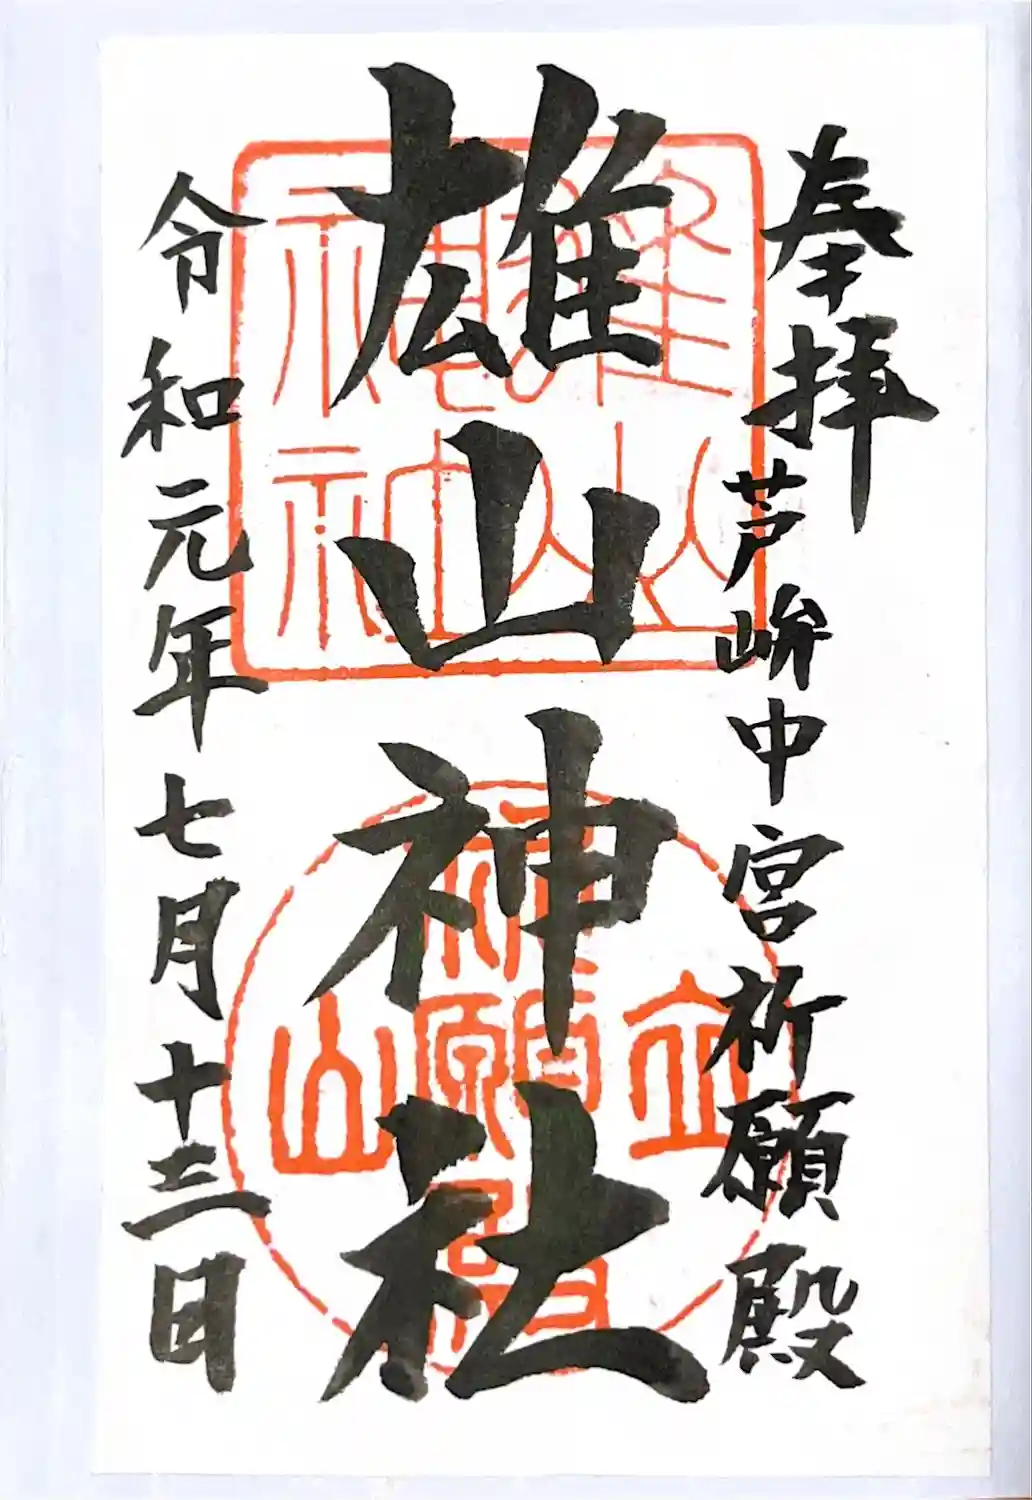 奉拝
芦峅中宮祈願殿
雄山神社
令和元年七月十三日
雄山神社
立山
祈願殿